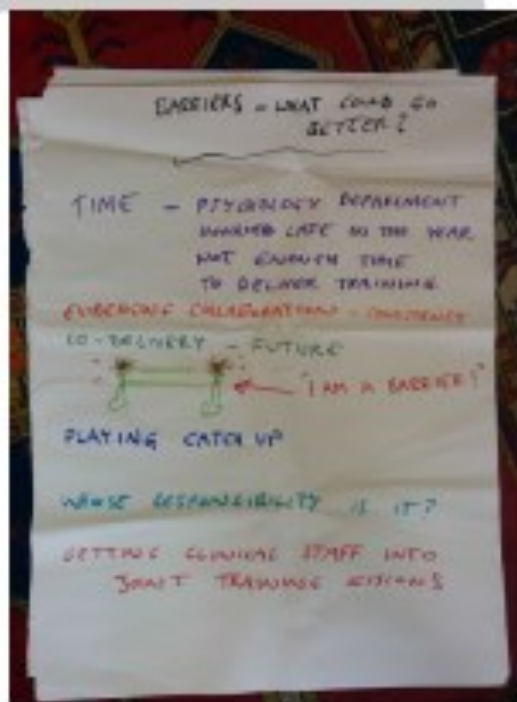 BARRIERS - WHAT COULD GO
BETTER?
TIME - PSYCHOLOGY DEPARTMENT
INVOLVED LATE IN THE YEAR
NOT ENOUGH TIME
TO DELIVER TRAINING
EVIDENCING COLLABORATION -
CO-DELIVERY - FUTURE
"I AM A BARRIER!"
PLAYING CATCH UP
WHOSE RESPONSIBILITY IS IT?
GETTING CLINICAL STAFF INTO
JOINT TRAINING